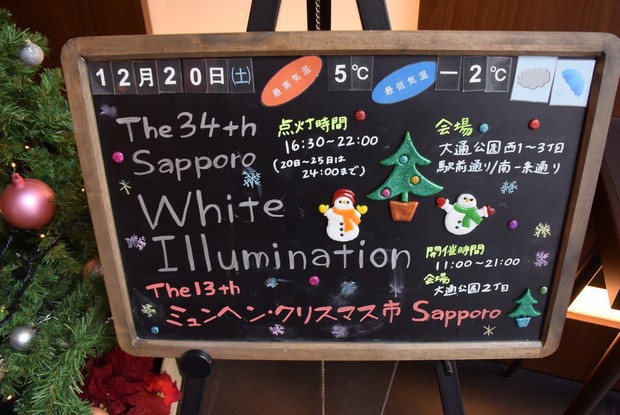 12月20日(土) 最高気温 5℃ 最低気温 -2℃
The 34th
Sapporo
White
Illumination
点灯時間
16:30~22:00
(20日~25日は
24:00まで)
会場
大通公園西1~3丁目
駅前通り/南一条通り
開催時間
11:00~21:00
会場
大通公園2丁目
The 13th
ミュンヘン・クリスマス市 Sapporo